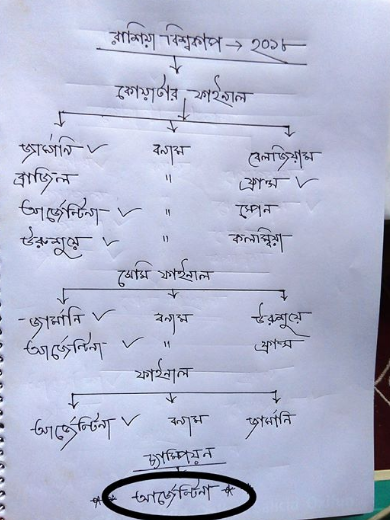 রাশিয়া বিশ্বকাপ → ২০১৮
কোয়ার্টার ফাইনাল
জার্মানি ✓ বনাম বেলজিয়াম
ব্রাজিল " ফ্রান্স ✓
আর্জেন্টিনা ✓ " স্পেন
উরুগুয়ে ✓ " কলম্বিয়া
সেমি ফাইনাল
জার্মানি ✓ বনাম উরুগুয়ে
আর্জেন্টিনা ✓ " ফ্রান্স
ফাইনাল
আর্জেন্টিনা ✓ বনাম জার্মানি
চ্যাম্পিয়ন
** আর্জেন্টিনা **